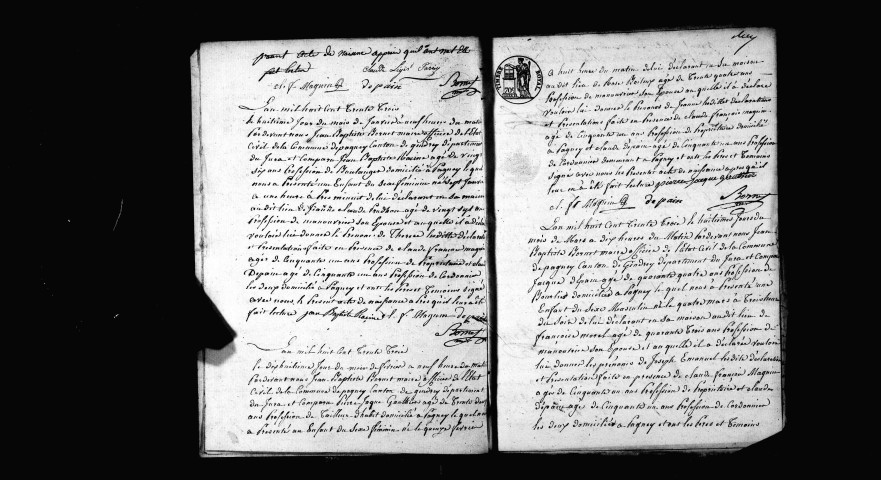 present acte de naissance après qu'il leur ont été
fait lecture Claude Louis
cl. f. Maguin depain Bornet
L'an mil huit cent trente trois
le huitieme jour du mois de Janvier à neuf heure du matin
Pardevant nous Jean Baptiste Bornet maire officier de l'état
Civil de la Commune de pagney Canton de gendrey département
du Jura est Comparu Jean Baptiste Racine agé de vingt
six ans profession de Boulanger domicilié à pagney lequel
nous a présenté un Enfant du Sexe féminin né le sept Janvier
a une heure après minuit de lui déclarant en sa maison
au dit lieu de agé de vingt sept ans
profession de manouvriere son Epouse et auquel il a déclaré
vouloir lui donner le prénom de Therese les dittes déclaration
et presentation faite en presence de claude francois maguin
agé de Cinquante un ans profession de propriétaire et claude
Depain agé de Cinquante un ans profession de Cordonnier
les deux domicilié à pagney et ont les peres et temoins signé
avec nous le present acte de naissance après qu'il leur a été
fait lecture Jean Baptiste Racine cl. f. Maguin depain
Bornet
L'an mil huit cent trente trois
le dixhuitieme jour du mois de fevrier a neuf heure du matin
Pardevant nous Jean Baptiste Bornet maire officier de l'Etat
Civil de la Commune de pagney canton de gendrey département
du Jura est Comparu pierre Jaque Gauthier agé de trente deux
ans profession de tailleur d'habit domicilié à pagney lequel nous
a presenté un Enfant du Sexe féminin né le quinze fevrier
TIMBRE ROYAL
a huit heure du matin de lui déclarant en sa maison
au dit lieu de agé de trente quatre ans
profession de manouvriere son Epouse au quelle il a déclaré
vouloir lui donner le prénom de Jeanne les dittes déclaration
et presentations faite en presence de claude françois maguin
agé de Cinquante un ans profession de propriétaire domicilié
à pagney et claude depain agé de cinquante un ans profession
de Cordonnier demeurant a pagney et ont les peres et temoins
signé avec nous le present acte de naissance après qu'il
leur en a été fait lecture pierre Jaque gauthier
cl. f. Maguin depain Bornet
L'an mil huit cent trente trois le huitieme jour du
mois de Mars a dix heures du Matin Pardevant nous Jean
Baptiste Bornet maire officier de l'état Civil de la Commune
de pagney Canton de Gendrey département du Jura est Comparu
Jacque depain agé de quarante quatre ans profession de
domicilié a pagney le quel nous a presenté un
Enfant du Sexe Masculin né le quatre mars a trois heure
du Soir de lui déclarant en sa maison au dit lieu de
françoise morel agé de quarante trois ans profession de
manouvriere son Epouse et au quelle il a déclaré vouloir
lui donner les prénoms de Joseph Emanuel les dite déclaration
et presentation faite en presence de claude François Maguin
agé de Cinquante un ans profession de propriétaire et claude
depain agé de Cinquante un ans profession de Cordonnier
les deux domicilié a pagney et ont les peres et temoins